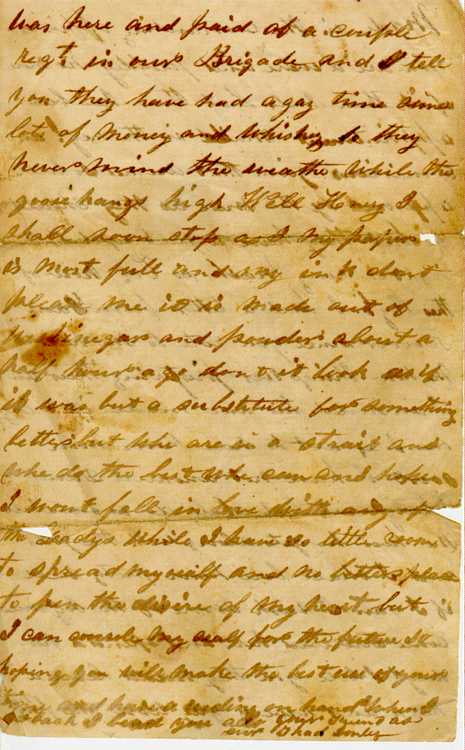 was here and paid of a couple
regt in our Brigade and I tell
you they have had a gay time since
lots of money and whiskey so they
never mind the weather while the
goose hangs high Well Honey I
shall soon stop as my paper
is most full and my ink dont
please me it is made out of
vinegar and powder about a
half hour ago dont it look as if
it was but a substitute for something
better but we are in a strait and
we do the best we can and hope
I wont fall in love with any of
the Ladys while I have so little room
to spread myself and no better place
to pen the desire of my heart but
I can console my self for the future
hoping you will make the best use of your
time and have a on hand when I
back I bead you your friend as
ever Chas